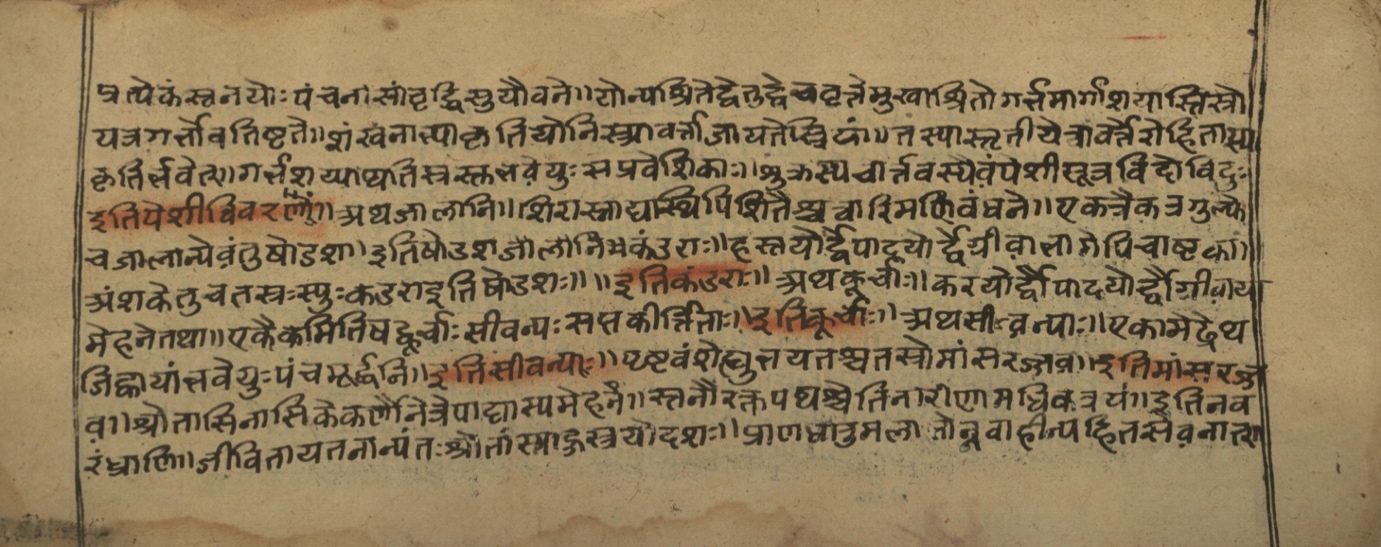 प्रत्येकं स्तनयोः पंचनासांवृद्धिस्तुयौवने॥योन्यश्रितेद्वेतुद्वेचवृत्तेमुखाश्रितो गर्त्तमार्गाशयास्तिस्रो
यत्रगर्त्तोवतिष्टते॥शंखनाभ्याकृतियोनिस्त्र्यावर्त्ताजायतेस्त्रियां॥तस्यास्तृतीयेत्रावर्त्तेरोहितास्या
कृतिर्भवेत्॥गर्भशय्याप्यतिस्त्रस्तुभवेयुःसप्रवेशिकाः॥शुक्रस्यचार्त्तवस्यैवंपेशीसूत्रविदोविदुः
इतिपेशीविवरणं॥अथजालानि॥शिरास्नाय्वास्थिपिशितैश्चत्वारिमणिबंधने॥एकत्रैकत्रगुल्फे
चजालान्येवंतुषोडश॥इतिषोडशजालानिअथकंडराः॥हस्तयोर्द्वेपादयोर्द्वेग्रीवाभागेपिचाष्टका॥
अंशकेतुचतस्त्रःस्युःकडराइतिषोडशः॥॥इतिकंडराः॥अथकूर्चाः॥करयोर्द्वौपादयोर्द्वौग्रीवाया
मेहनेतथा॥एकैकमितिषट्कूर्चाः सीवन्यः सप्तकीर्त्तिताः॥इतिकूर्चाः॥अथसीवन्याः॥एकामेढ्रेथ
जिह्वायांभवेयुःपंचमूर्द्धनि॥इतिसीवन्याः॥पृष्टवंशेह्युभयतश्चतस्त्रोमांसरज्जव॥इतिमांसरज्जु
व॥श्रोतासिनासिकेकर्णौनेत्रेपाय्वास्यमेहने॥स्तनौरक्तपथश्चेतिनारीणामधिकत्रयं॥इतिनव
रंध्राणि॥जीवितायतनान्यंतःश्रोतांस्याहुस्त्रयोदशः॥प्राणधातुमला